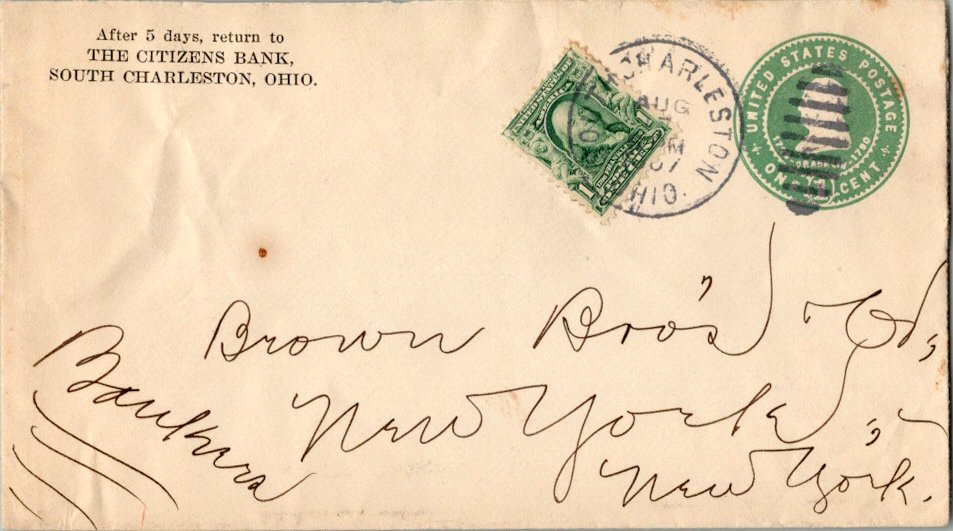 After 5 days, return to
THE CITIZENS BANK,
SOUTH CHARLESTON, OHIO.
CHARLESTON
AUG
07
OHIO.
1
1
UNITED STATES POSTAGE
ONE CENT
Brown Bro's & Co,
Bankers
New York,
New York.